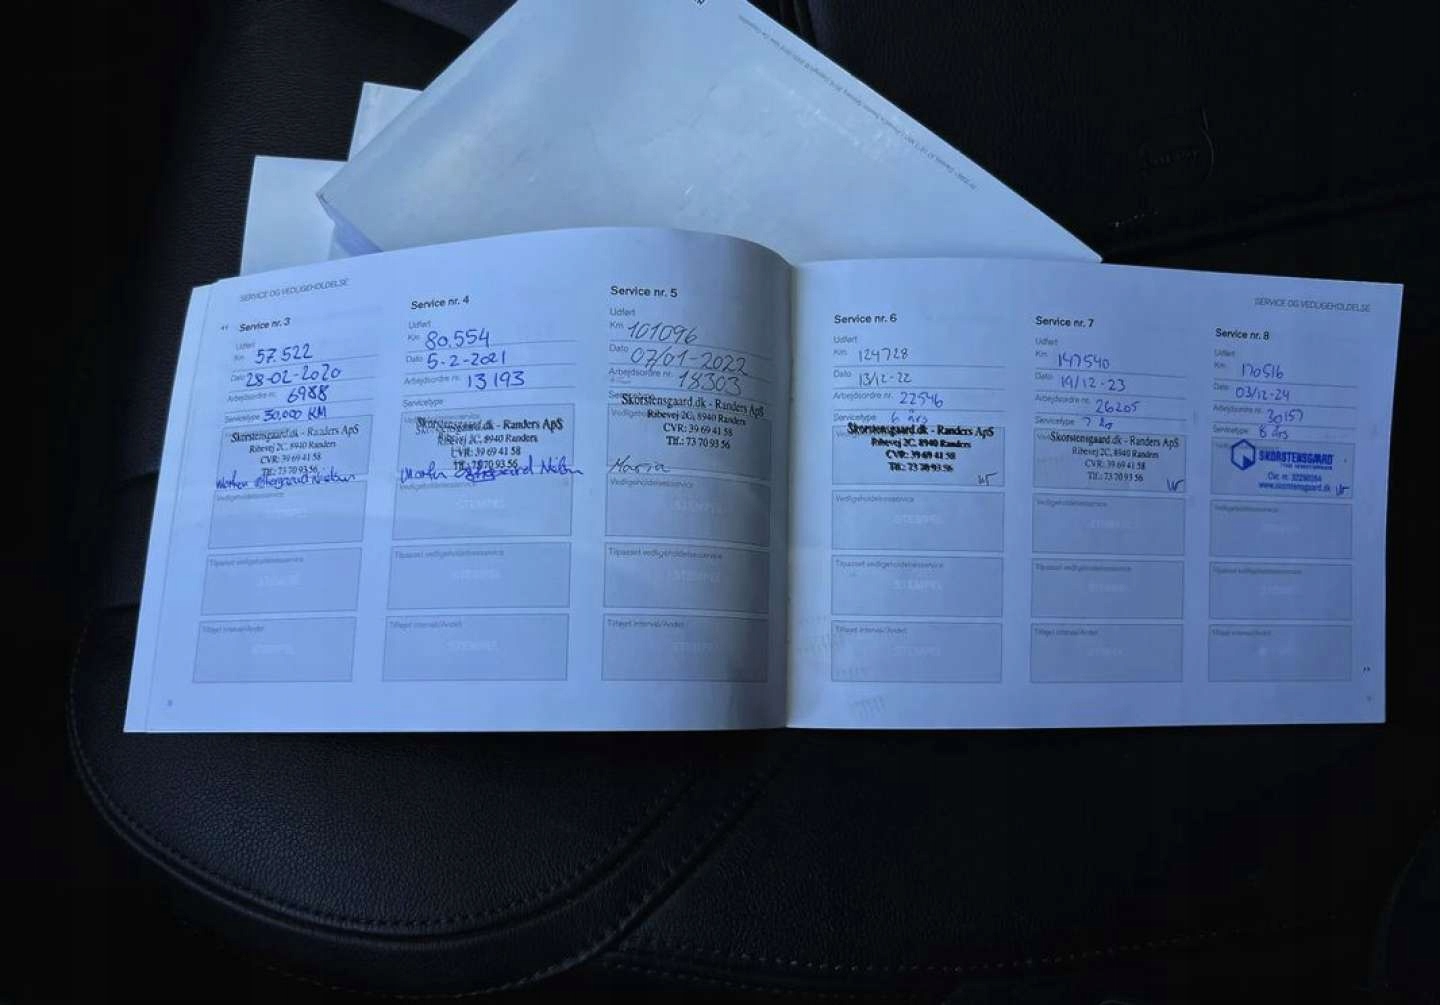 SERVICE OG VEDLIGEHOLDELSE
Service nr. 3
Udført
Km 57.522
Dato 28-02-2020
Arbejdsordre nr. 6988
Servicetype 30,000 KM
Skorstensgaard.dk - Randers ApS
Ribevej 2C, 8940 Randers
CVR: 39 69 41 58
Tlf.: 73 70 93 56
Vedligeholdelsesservice
STEMPEL
Tilpasset vedligeholdelsesservice
STEMPEL
Tilføjet interval/Andet
STEMPEL
8
Service nr. 4
Udført
Km 80.554
Dato 5-2-2021
Arbejdsordre nr. 13193
Servicetype
Skorstensgaard.dk - Randers ApS
Ribevej 2C, 8940 Randers
CVR: 39 69 41 58
Tlf.: 73 70 93 56
Vedligeholdelsesservice
STEMPEL
Tilpasset vedligeholdelsesservice
STEMPEL
Tilføjet interval/Andet
STEMPEL
Service nr. 5
Udført
Km 101096
Dato 07/01-2022
Arbejdsordre nr. 18303
Skorstensgaard.dk - Randers ApS
Ribevej 2C, 8940 Randers
CVR: 39 69 41 58
Tlf.: 73 70 93 56
Maria
Vedligeholdelsesservice
STEMPEL
Tilpasset vedligeholdelsesservice
STEMPEL
Tilføjet interval/Andet
STEMPEL
SERVICE OG VEDLIGEHOLDELSE
Service nr. 6
Udført
Km 124728
Dato 13/12-22
Arbejdsordre nr. 22546
Servicetype 6 års
Skorstensgaard.dk - Randers ApS
Ribevej 2C, 8940 Randers
CVR: 39 69 41 58
Tlf.: 73 70 93 56
Vedligeholdelsesservice
STEMPEL
Tilpasset vedligeholdelsesservice
STEMPEL
Tilføjet interval/Andet
STEMPEL
Service nr. 7
Udført
Km 147540
Dato 19/12-23
Arbejdsordre nr. 26205
Servicetype 7 års
Skorstensgaard.dk - Randers ApS
Ribevej 2C, 8940 Randers
CVR: 39 69 41 58
Tlf.: 73 70 93 56
Vedligeholdelsesservice
STEMPEL
Tilpasset vedligeholdelsesservice
STEMPEL
Tilføjet interval/Andet
STEMPEL
Service nr. 8
Udført
Km 170516
Dato 03/12-24
Arbejdsordre nr. 30157
Servicetype 8 års
SKORSTENSGAARD
www.skorstensgaard.dk
Vedligeholdelsesservice
STEMPEL
Tilpasset vedligeholdelsesservice
STEMPEL
Tilføjet interval/Andet